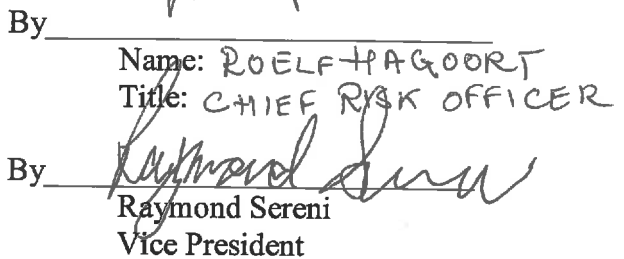 By
Name: ROELF HAGOORT
Title: CHIEF RISK OFFICER
By Raymond Sereni
Raymond Sereni
Vice President